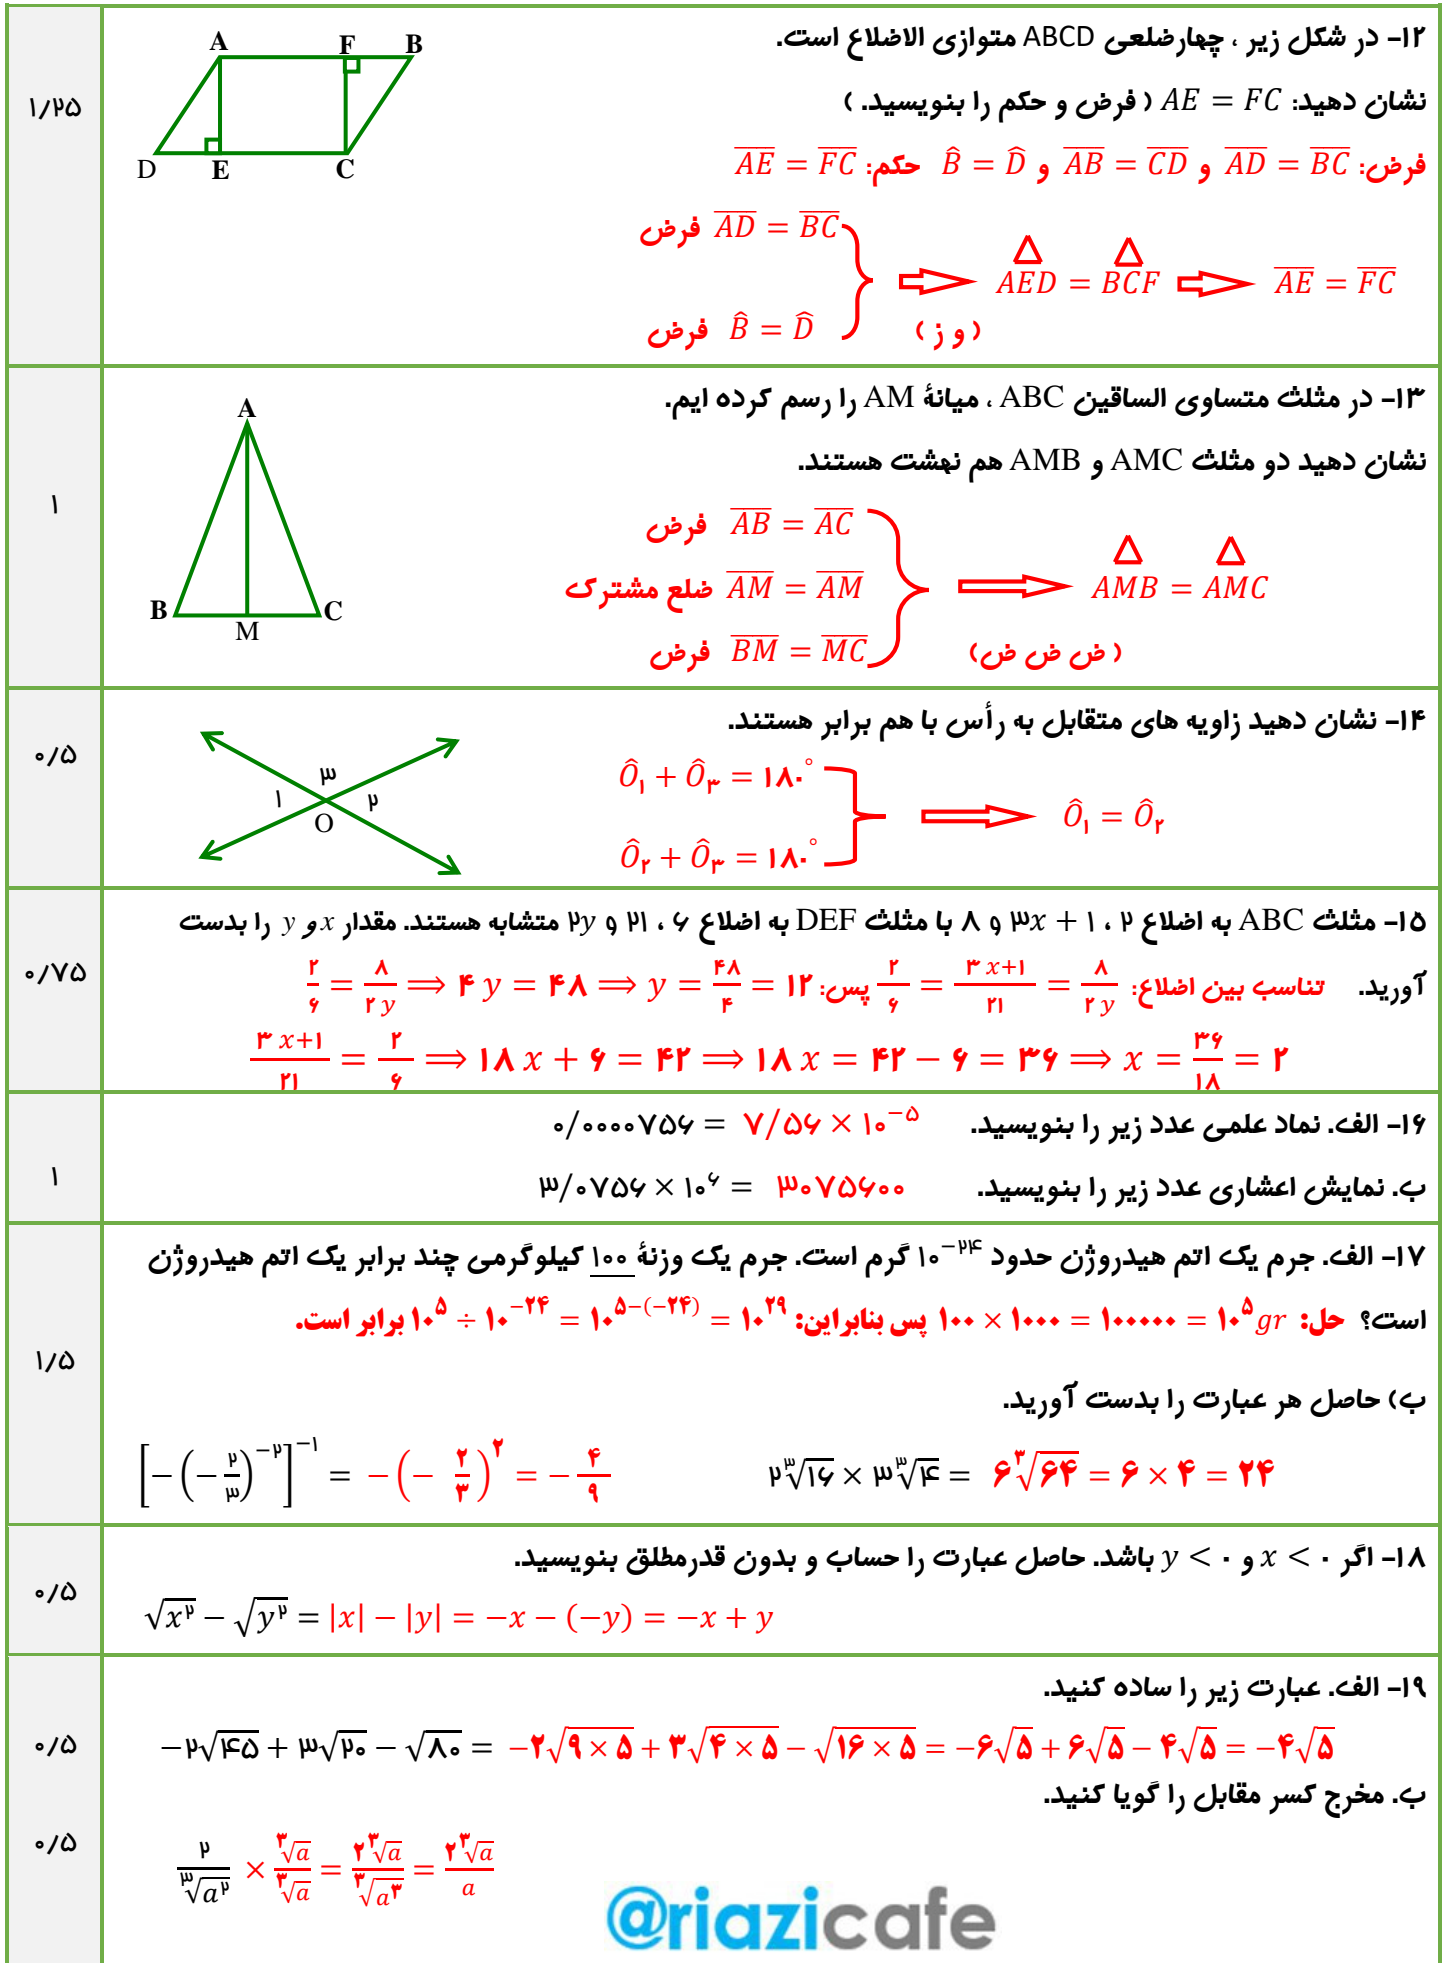 ۱۲- در شکل زیر ، چهارضلعی ABCD متوازی الاضلاع است.
A F B
D E C
۱/۲۵
نشان دهید: AE = FC ( فرض و حکم را بنویسید. )
فرض: AD = BC و AB = CD و B̂ = D̂ حکم: AE = FC
AD = BC فرض
B̂ = D̂ فرض
( و ز )
AED = BCF ⇒ AE = FC
۱۳- در مثلث متساوی الساقین ABC ، میانهٔ AM را رسم کرده ایم.
A
B M C
۱
نشان دهید دو مثلث AMC و AMB هم نهشت هستند.
AB = AC فرض
AM = AM ضلع مشترک
BM = MC فرض
( ض ض ض)
AMB = AMC
۱۴- نشان دهید زاویه های متقابل به رأس با هم برابر هستند.
۰/۵
۱ ۳ ۲
O
Ô₁ + Ô₃ = ۱۸۰°
Ô₂ + Ô₃ = ۱۸۰°
⇒ Ô₁ = Ô₂
۱۵- مثلث ABC به اضلاع ۲ ، ۳x + ۱ و ۸ با مثلث DEF به اضلاع ۶ ، ۲۱ و ۲y متشابه هستند. مقدار x و y را بدست
۰/۷۵
آورید. تناسب بین اضلاع: ۲/۶ = (۳x+۱)/۲۱ = ۸/(۲y) پس: ۲/۶ = ۸/(۲y) ⇒ ۴y = ۴۸ ⇒ y = ۴۸/۴ = ۱۲
(۳x+۱)/۲۱ = ۲/۶ ⇒ ۱۸x + ۶ = ۴۲ ⇒ ۱۸x = ۴۲ − ۶ = ۳۶ ⇒ x = ۳۶/۱۸ = ۲
۱۶- الف. نماد علمی عدد زیر را بنویسید. ۰/۰۰۰۰۷۵۶ = ۷/۵۶ × ۱۰^−۵
۱
ب. نمایش اعشاری عدد زیر را بنویسید. ۳/۰۷۵۶ × ۱۰^۶ = ۳۰۷۵۶۰۰
۱۷- الف. جرم یک اتم هیدروژن حدود ۱۰^−۲۴ گرم است. جرم یک وزنهٔ ۱۰۰ کیلوگرمی چند برابر یک اتم هیدروژن
است؟ حل: ۱۰۰ × ۱۰۰۰ = ۱۰۰۰۰۰ = ۱۰^۵ gr پس بنابراین: ۱۰^۵ ÷ ۱۰^−۲۴ = ۱۰^۵−(−۲۴) = ۱۰^۲۹ برابر است.
۱/۵
ب) حاصل هر عبارت را بدست آورید.
[−(−۲/۳)^−۲]^−۱ = −(− ۲/۳)^۲ = − ۴/۹
۲∛۱۶ × ۳∛۴ = ۶∛۶۴ = ۶ × ۴ = ۲۴
۱۸- اگر x < ۰ و y < ۰ باشد. حاصل عبارت را حساب و بدون قدرمطلق بنویسید.
۰/۵
√x^۲ − √y^۲ = |x| − |y| = −x − (−y) = −x + y
۱۹- الف. عبارت زیر را ساده کنید.
۰/۵
−۲√۴۵ + ۳√۲۰ − √۸۰ = −۲√(۹ × ۵) + ۳√(۴ × ۵) − √(۱۶ × ۵) = −۶√۵ + ۶√۵ − ۴√۵ = −۴√۵
ب. مخرج کسر مقابل را گویا کنید.
۰/۵
۲/∛a^۲ × ∛a/∛a = ۲∛a/∛a^۳ = ۲∛a/a
@riazicafe